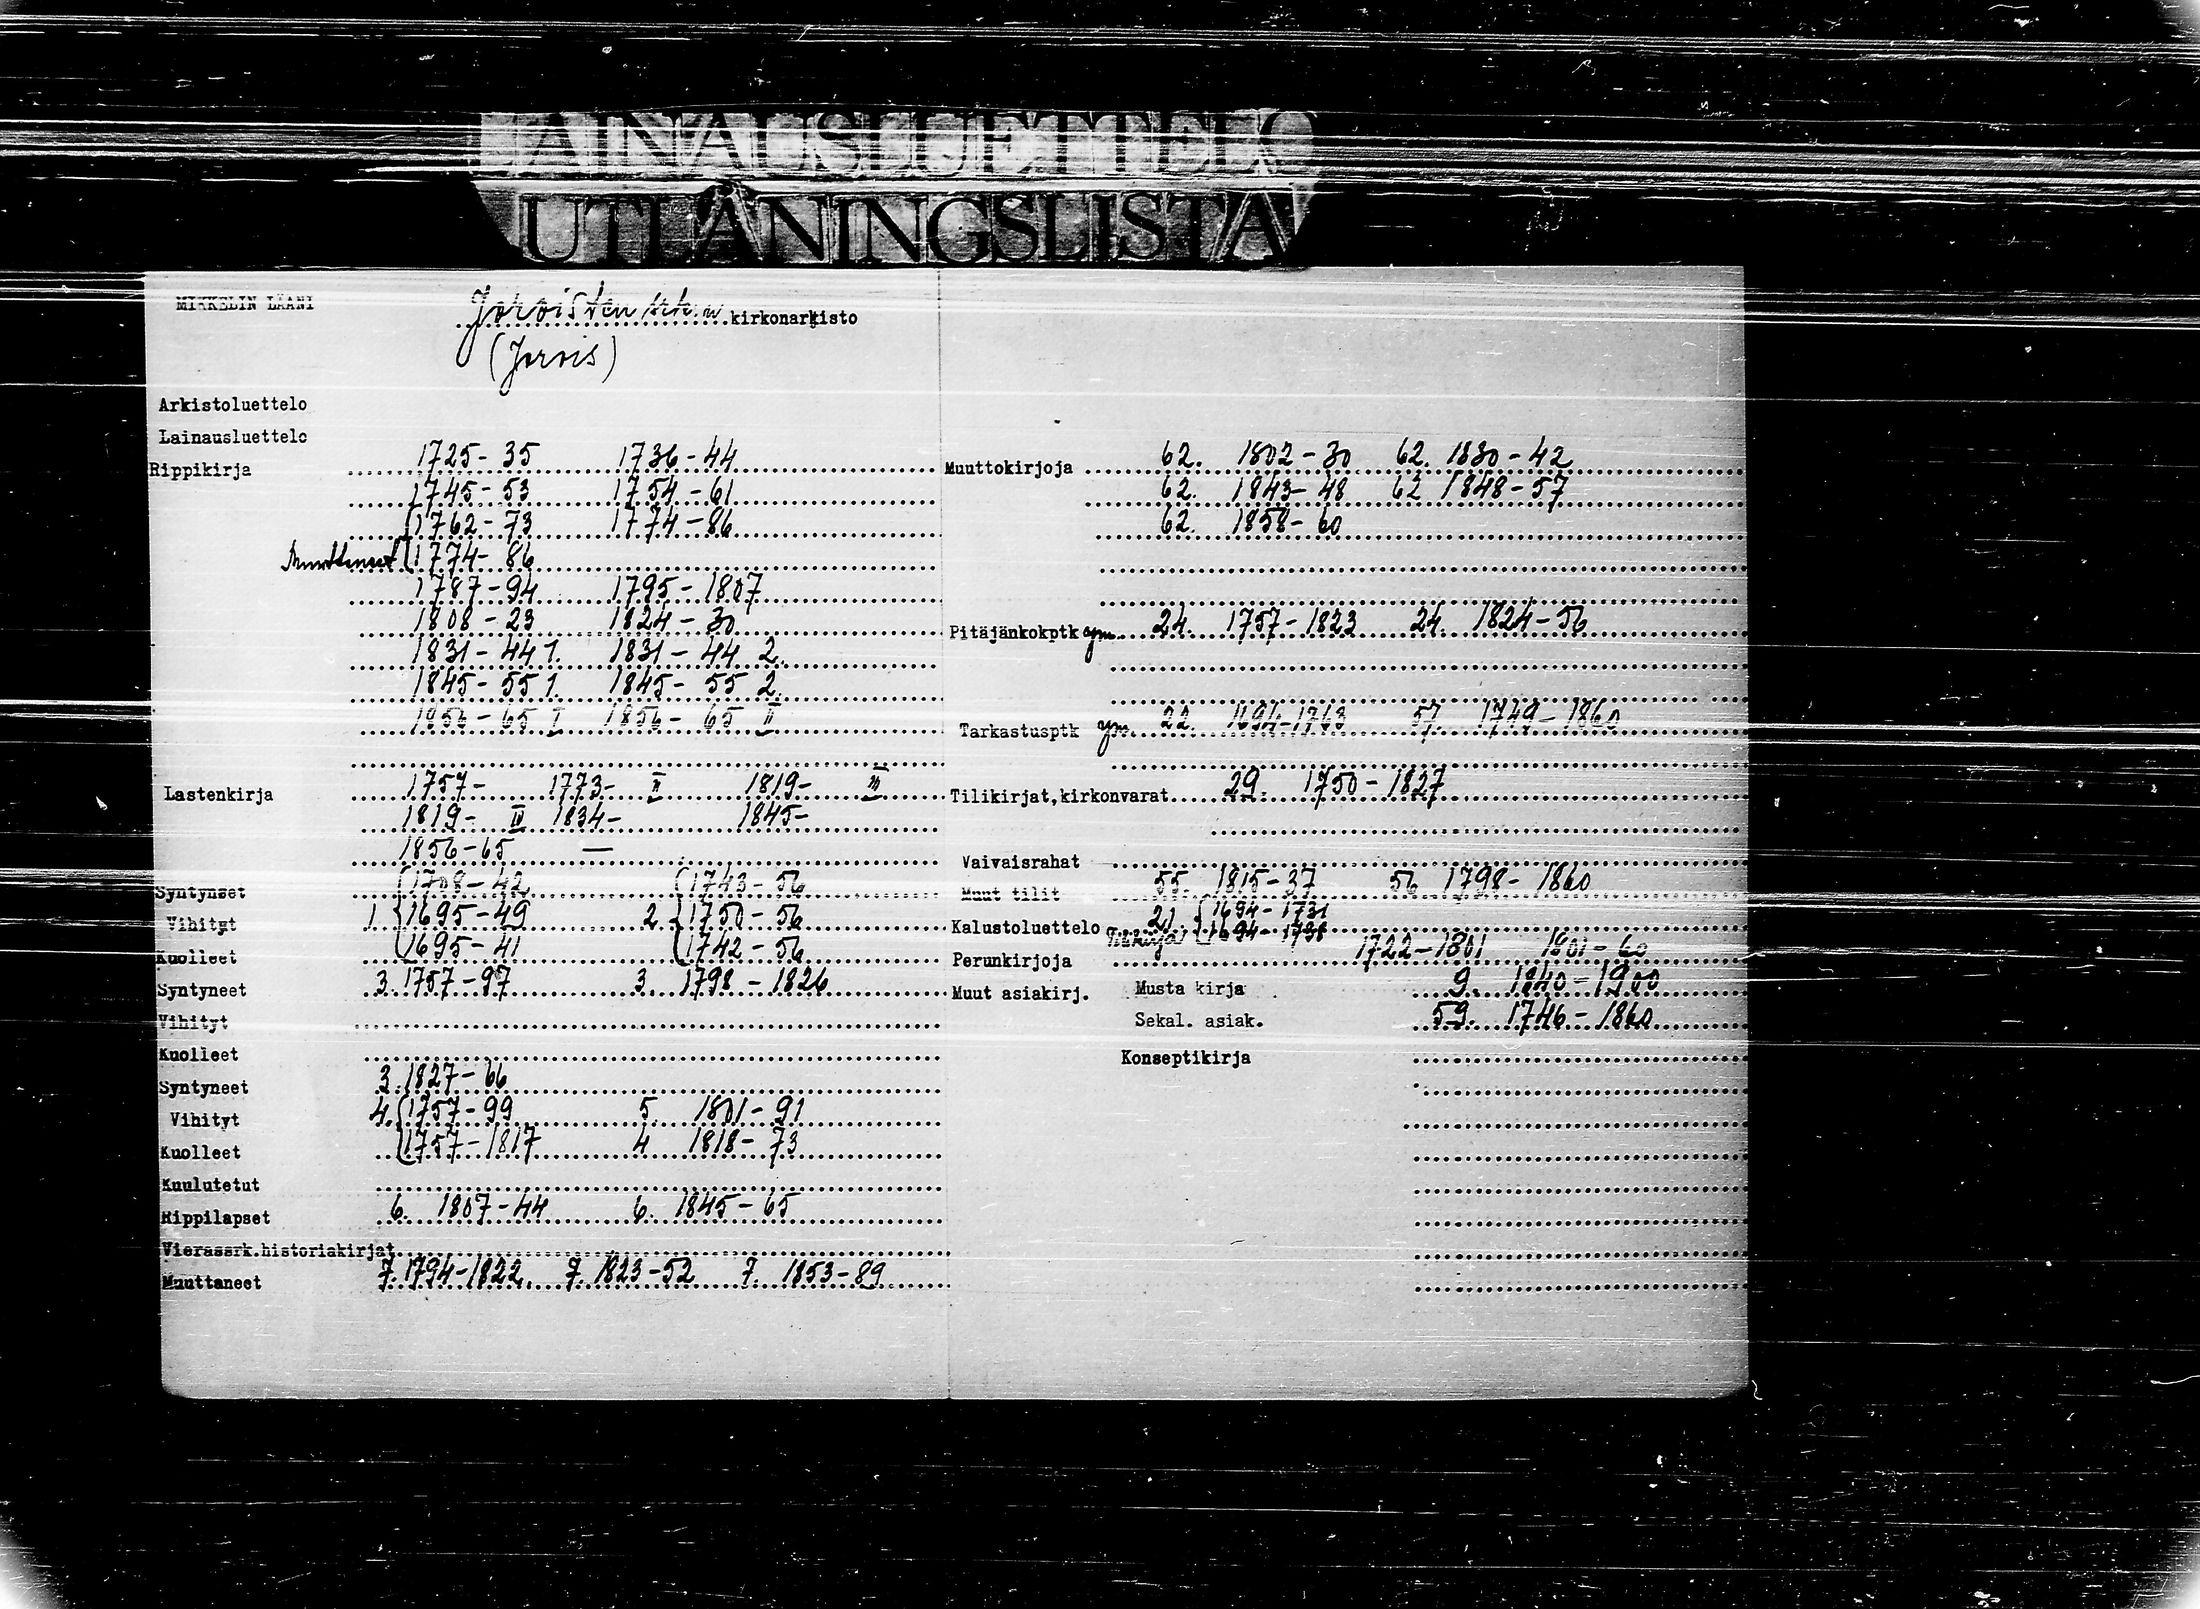 LAINAUSLUETTELO
UTLÅNINGSLISTA
MIKKELIN LÄÄNI
Joroisten srk:n kirkonarkisto
(Jorois)
Arkistoluettelo
Lainausluettelo
Rippikirja 1725-35 1736-44
1745-53 1754-61
1762-73 1774-86
Muuttaneet 1774-86
1787-94 1795-1807
1808-23 1824-30
1831-44 1. 1831-44 2.
1845-55 1. 1845-55 2.
1856-65 I 1856-65 II
Lastenkirja 1757- 1773- II 1819- III
1819- IV 1834- 1845-
1856-65 —
Syntyneet 1708-42 1743-56
Vihityt 1. 1695-49 2. 1750-56
Kuolleet 1695-41 1742-56
Syntyneet 3. 1757-97 3. 1798-1826
Vihityt
Kuolleet
Syntyneet 3. 1827-66
Vihityt 4. 1757-99 5. 1801-91
Kuolleet 1757-1817 4 1818-73
Kuulutetut
Rippilapset 6. 1807-44 6. 1845-65
Vierassrk.historiakirjat
Muuttaneet 7. 1794-1822 7. 1823-52 7. 1853-89
Muuttokirjoja 62. 1802-30 62. 1830-42
62. 1843-48 62 1848-57
62. 1858-60
Pitäjänkokptk ym. 24. 1757-1823 24. 1824-56
Tarkastusptk ym. 22. 1694-1763 57. 1749-1860
Tilikirjat,kirkonvarat 29. 1750-1827
Vaivaisrahat
Muut tilit 55. 1815-37 56 1798-1860
Kalustoluettelo 21. 1694-1731
Tilikirja 1694-1738
Perunkirjoja 1722-1801 1801-60
Muut asiakirj. Musta kirja 9. 1840-1900
Sekal. asiak. 59. 1746-1860
Konseptikirja